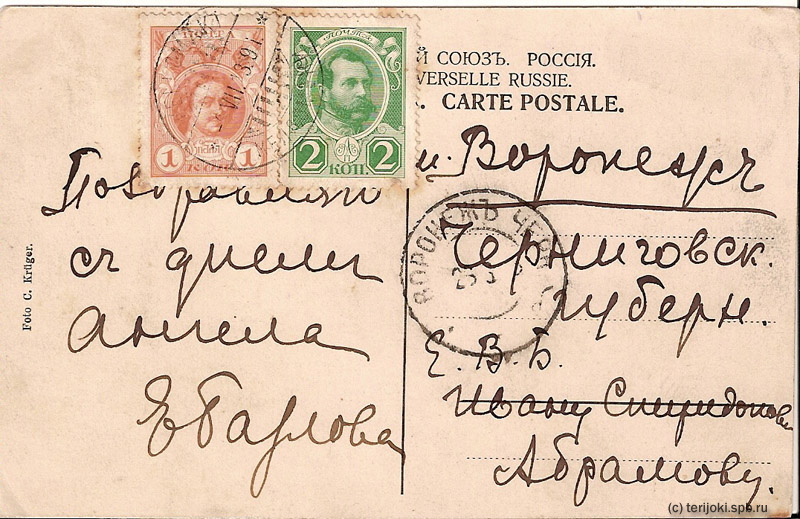 Й СОЮЗЪ. РОССІЯ.
VERSELLE RUSSIE.
CARTE POSTALE.
1 1
2 КОП. 2
Поздравляю
съ днемъ
ангела
Е Павлова
м. Воронежъ
Черниговск.
губерн.
Е. В. Б.
Ивану Спиридонови
Абрамову.
ВОРОНЕЖЪ ЧЕРН
Foto C. Krüger.
(c) terijoki.spb.ru